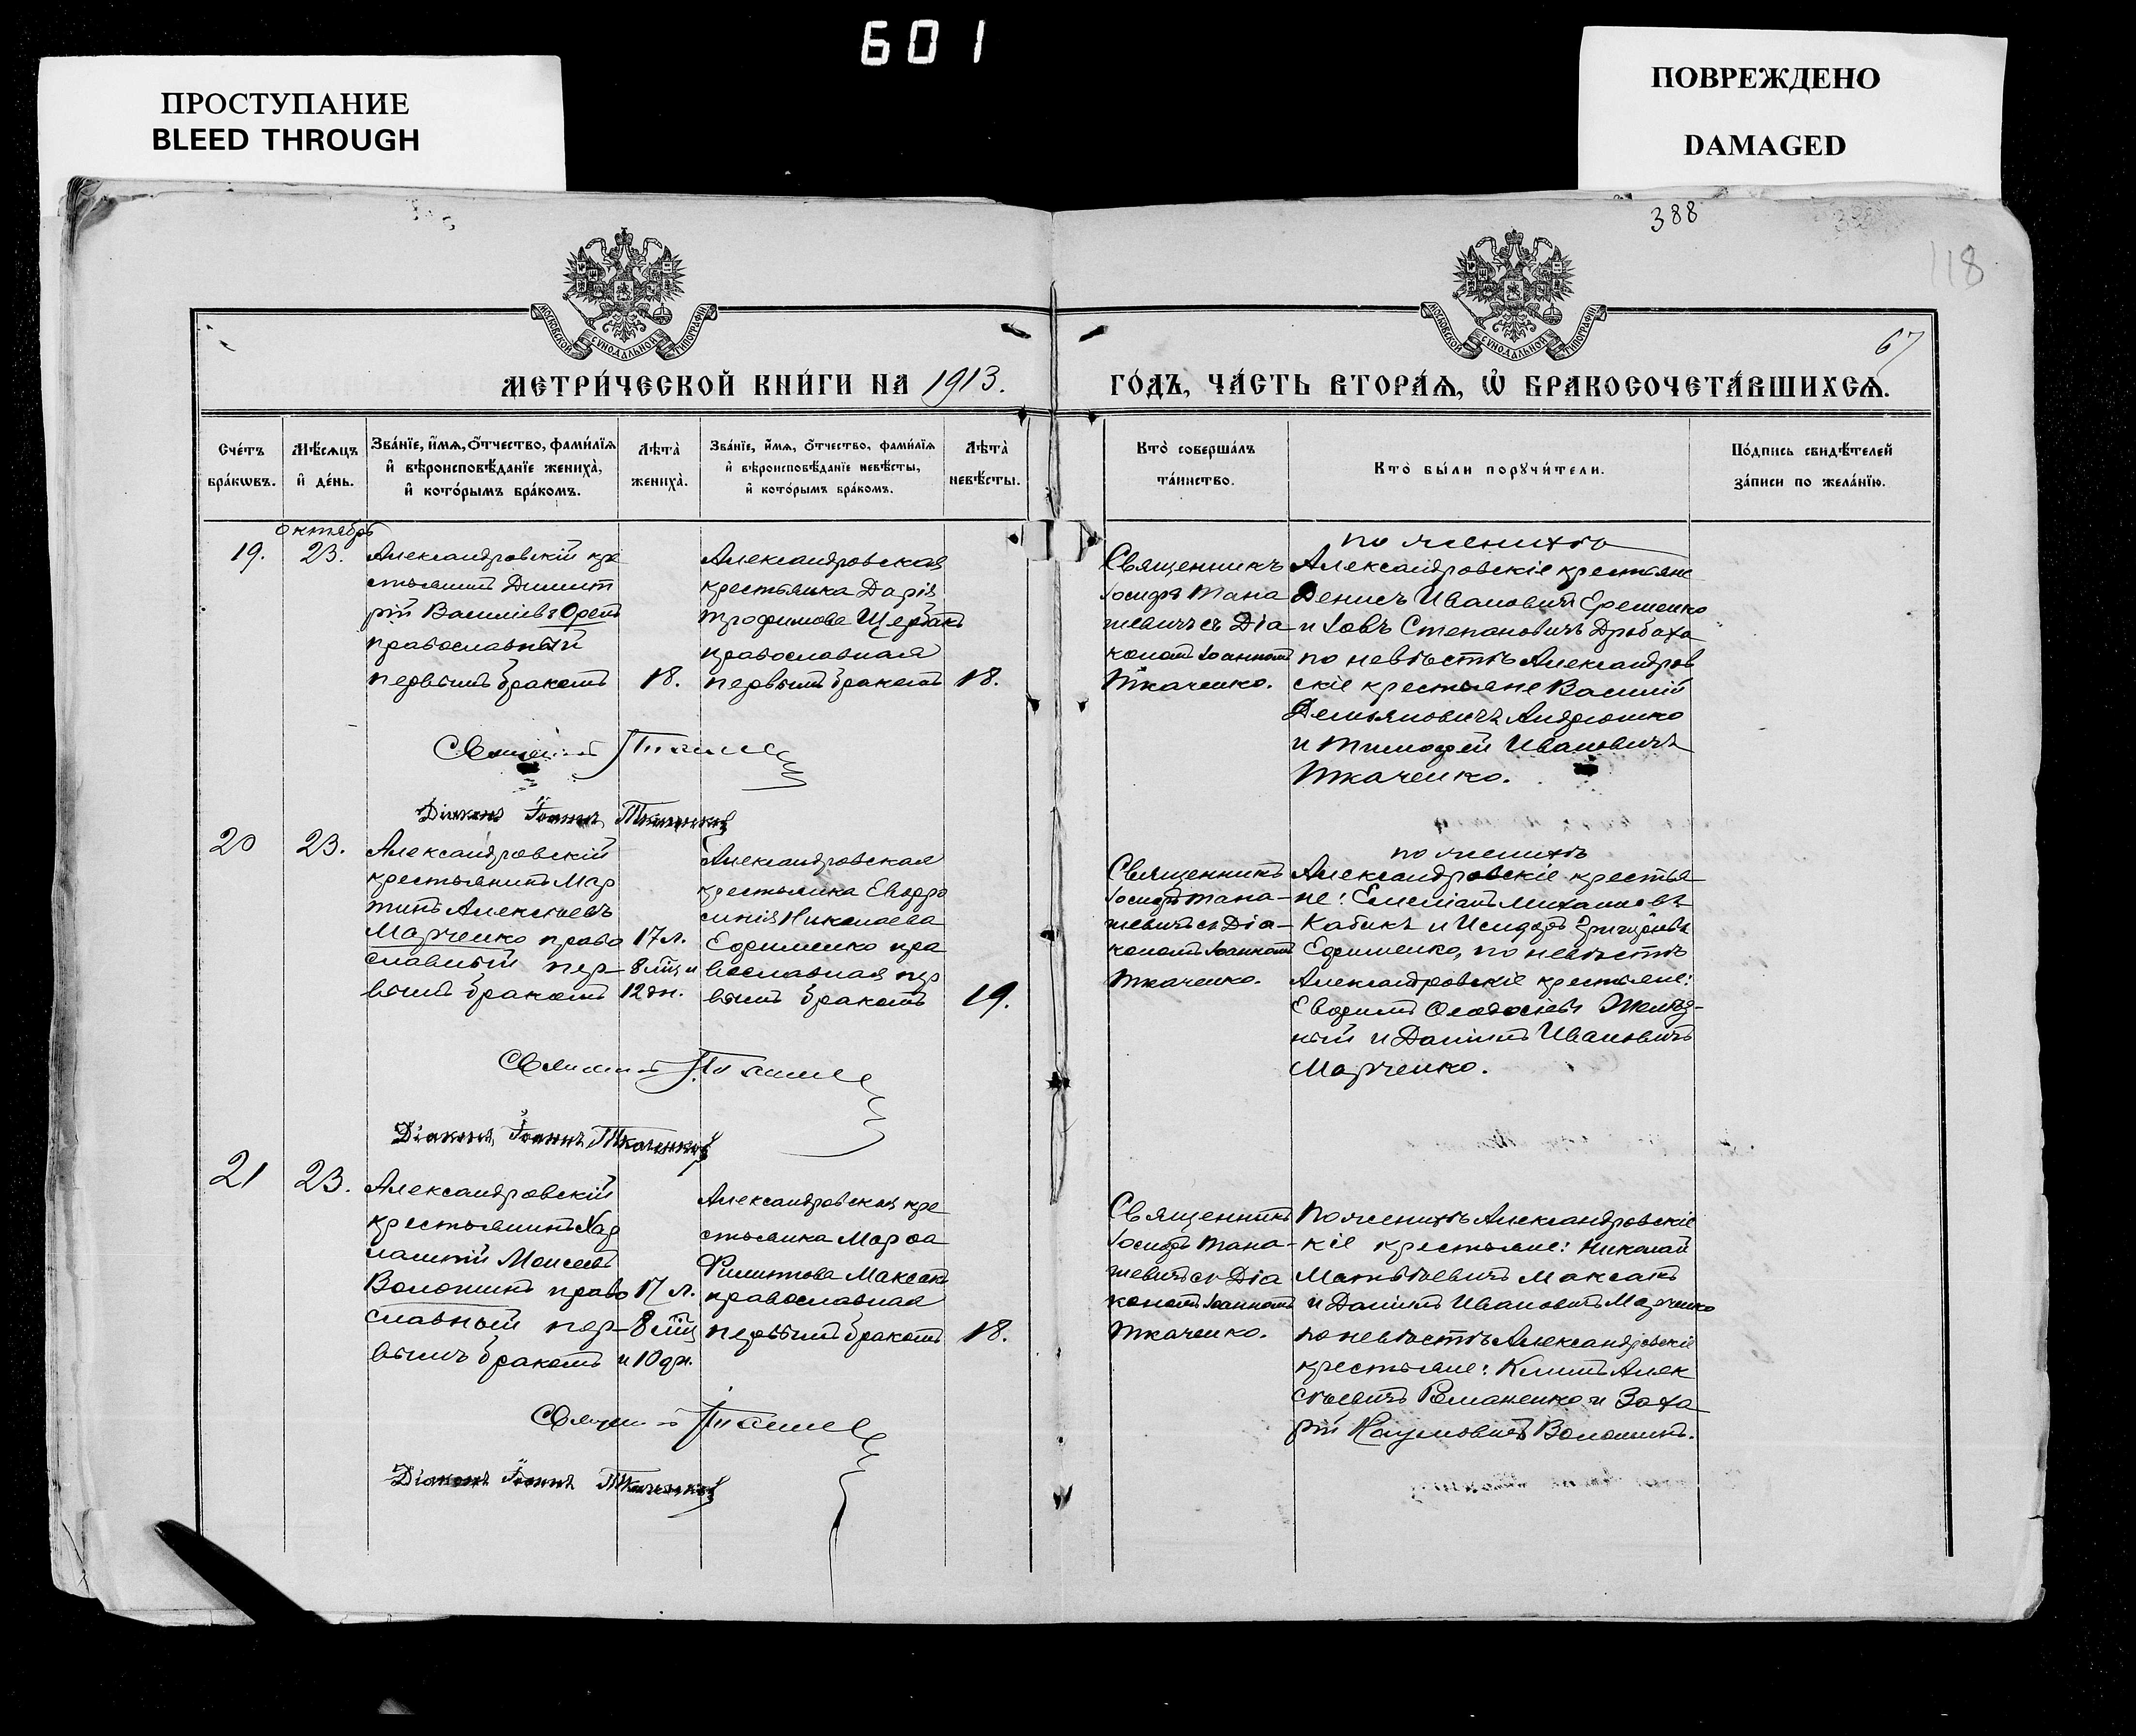 601
ПРОСТУПАНИЕ
BLEED THROUGH
ПОВРЕЖДЕНО
DAMAGED
388
118
67
МОСКОВСКОЙ СѴНОДАЛЬНОЙ ТИПОГРАФІИ
МОСКОВСКОЙ СѴНОДАЛЬНОЙ ТИПОГРАФІИ
МЕТРИ́ЧЕСКОЙ КНИ́ГИ НА 1913.
ГО́ДЪ, ЧА́СТЬ ВТОРА́Ѧ, Ѽ БРАКОСОЧЕТА́ВШИХСѦ.
Сче́тъ
бра́кѡвъ.
Мѣ́сѧцъ
и҆ де́нь.
Зва́нїе, и҆́мѧ, ѻ҆́тчество, фами́лїѧ
и҆ вѣроисповѣ́данїе жениха̀,
и҆ кото́рымъ бра́комъ.
Лѣта̀
жениха̀.
Зва́нїе, и҆́мѧ, ѻ҆́тчество, фами́лїѧ
и҆ вѣроисповѣ́данїе невѣ́сты,
и҆ кото́рымъ бра́комъ.
Лѣта̀
невѣ́сты.
Кто̀ соверша́лъ
та́инство.
Кто̀ бы́ли порꙋчи́тели.
По́дпись свидѣ́телей
за́писи по жела́нїю.
октябрь
19.
23.
Александровскій кре
стьянинъ Димит
рій Василіевъ
православный
первымъ бракомъ
18.
Александровская
крестьянка Дарія
Трофимова Щербакъ
православная
первымъ бракомъ
18.
Священникъ
Іосифъ Тана
шевичъ съ Діа
кономъ Іоанномъ
Ткаченко.
по женихѣ
Александровскіе крестьяне
Денисъ Ивановичъ Ерешенко
и Іовъ Степановичъ Дробаха
по невѣстѣ Александров
скіе крестьяне Василій
Демьяновичъ Андрюшко
и Тимофей Ивановичъ
Ткаченко.
Діаконъ Іоаннъ Ткаченко
20
23.
Александровскій
крестьянинъ Мар
тинъ Алексѣевъ
Марченко право
славный пер-
вымъ бракомъ
17 л.
8 мѣц и
12 дн.
Александровская
крестьянка Евдро
синія Николаева
Ефименко пра
вославная пер
вымъ бракомъ
19.
Священникъ
Іосифъ Тана-
шевичъ съ Діа-
кономъ Іоанномъ
Ткаченко.
по женихѣ
Александровскіе крестья
не: Емеліанъ Михаиловъ
Кабикъ и Исидоръ Григорьевъ
Ефименко, по невѣстѣ
Александровскіе крестьяне:
Евфимъ Ѳеодосіевъ Желѣз-
ный и Даніилъ Ивановичъ
Марченко.
Діаконъ Іоаннъ Ткаченко
21
23.
Александровскій
крестьянинъ Хар
лампій Моисеевъ
Волошинъ право
славный пер-
вымъ бракомъ
17 л.
8 мѣц
и 10 дн.
Александровская кре
стьянка Марѳа
Филиппова Максакъ
православная
первымъ бракомъ
18.
Священникъ
Іосифъ Тана-
шевичъ съ Діа
кономъ Іоанномъ
Ткаченко.
По женихѣ Александровскіе
кіе крестьяне: Николай
Матвѣевичъ Максакъ
и Даніилъ Ивановичъ Марченко
по невѣстѣ Александровскіе
крестьяне: Климъ Алек
сѣевичъ Романенко и Заха
рій Наумовичъ Волошинъ.
Діаконъ Іоаннъ Ткаченко